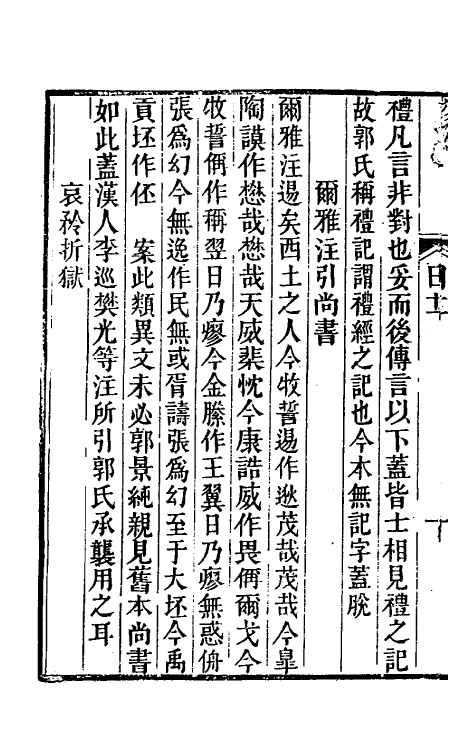 禮凡言非對也妥而後傳言以下蓋皆士相見禮之記
故郭氏稱禮記謂禮經之記也今本無記字蓋脫
爾雅注引尚書
爾雅注逷矣西土之人今牧誓逷作逖茂哉茂哉今臯
陶謨作懋哉懋哉天威棐忱今康誥威作畏偁爾戈今
牧誓偁作稱翌日乃瘳今金縢作王翼日乃瘳無惑侜
張爲幻今無逸作民無或胥譸張爲幻至于大坯今禹
貢坯作伾 案此類異文未必郭景純親見舊本尚書
如此蓋漢人李巡樊光等注所引郭氏承襲用之耳
哀矜折獄